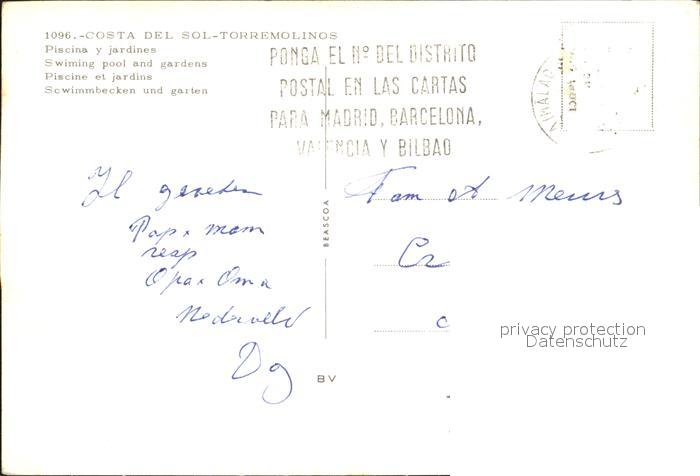 1096.-COSTA DEL SOL-TORREMOLINOS
Piscina y jardines
Swiming pool and gardens
Piscine et jardins
Scwimmbecken und garten
PONGA EL Nº DEL DISTRITO
POSTAL EN LAS CARTAS
PARA MADRID, BARCELONA,
VALENCIA Y BILBAO
Pap x mam
resp
Opa x Oma
Nederveld
Dag
BEASCOA
BV
Fam
Meurs
privacy protection
Datenschutz